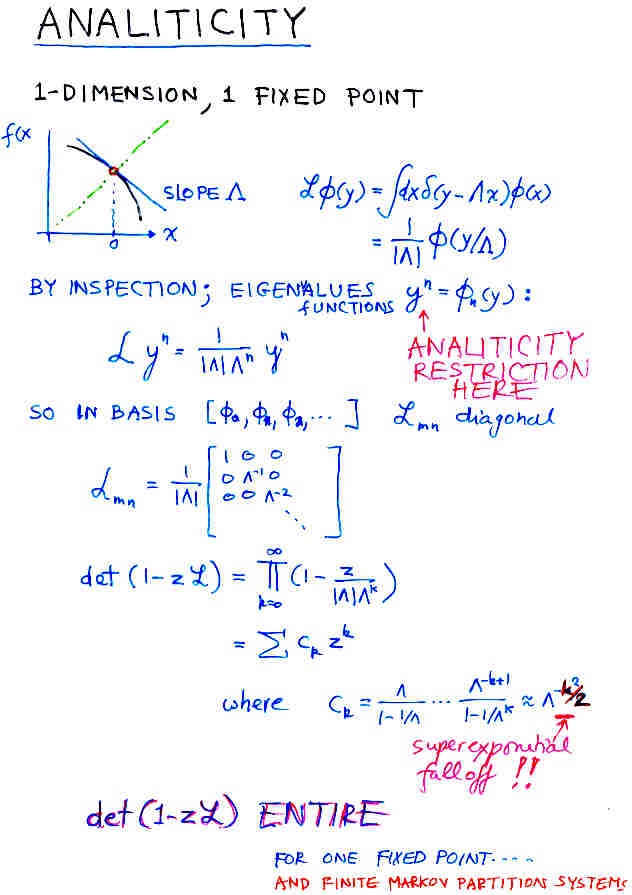 ANALITICITY
1-DIMENSION, 1 FIXED POINT
f(x
SLOPE Λ
0
x
ℒφ(y) = ∫dxδ(y-Λx)φ(x)
= 1/|Λ| φ(y/Λ)
BY INSPECTION; EIGENVALUES FUNCTIONS yⁿ = φₙ(y) :
ℒ yⁿ = 1/(|Λ|Λⁿ) yⁿ
ANALITICITY
RESTRICTION
HERE
SO IN BASIS [φ₀, φ₁, φ₂, ...] ℒₘₙ diagonal
ℒₘₙ = 1/|Λ| [
1 0 0
0 Λ⁻¹ 0
0 0 Λ⁻²
⋱ ]
det (1-zℒ) = ∏_{k=0}^{∞} (1 - z/(|Λ|Λᵏ))
= Σ Cₖ zᵏ
where Cₖ = Λ/(1-1/Λ) ... Λ^{-k+1}/(1-1/Λᵏ) ≈ Λ^{-k²/2}
superexponential
fall off !!
det (1-zℒ) ENTIRE
FOR ONE FIXED POINT....
AND FINITE MARKOV PARTITION SYSTEMS